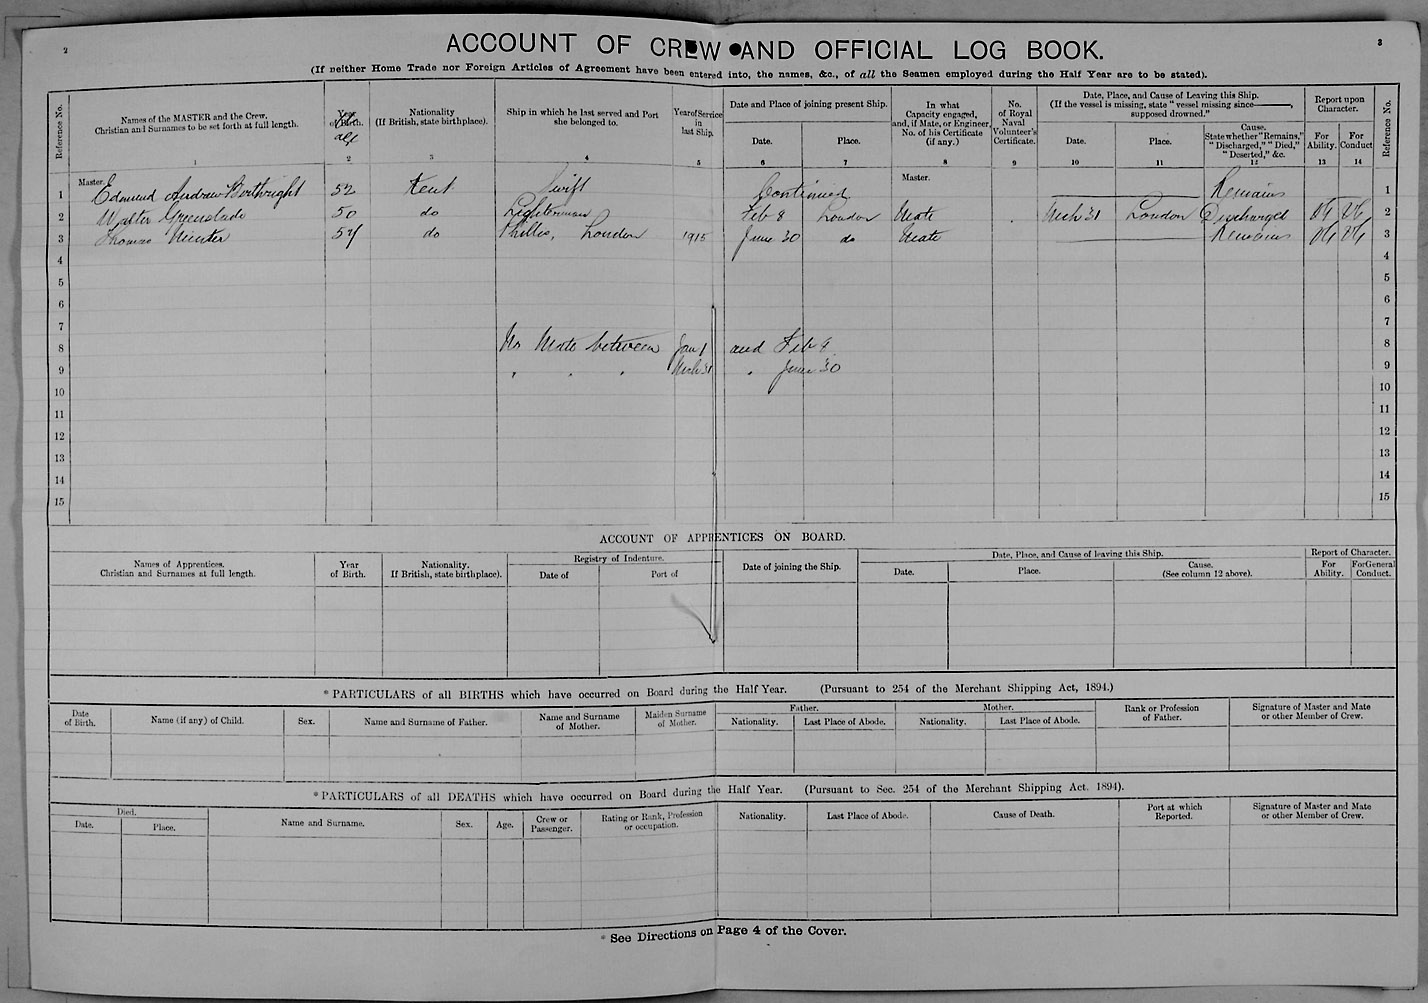 2
3
ACCOUNT OF CREW AND OFFICIAL LOG BOOK.
(If neither Home Trade nor Foreign Articles of Agreement have been entered into, the names, &c., of all the Seamen employed during the Half Year are to be stated).
Reference No. Names of the MASTER and the Crew, Christian and Surnames to be set forth at full length. Year of Birth. Nationality (If British, state birthplace). Ship in which he last served and Port she belonged to. Year of Service in last Ship. Date and Place of joining present Ship. Date. Place. In what Capacity engaged, and, if Mate, or Engineer, No. of his Certificate (if any.) No. of Royal Naval Volunteer's Certificate. Date, Place, and Cause of Leaving this Ship. (If the vessel is missing, state "vessel missing since———, supposed drowned.") Date. Place. Cause. State whether "Remains," "Discharged," "Died," "Deserted," &c. Report upon Character. For Ability. For Conduct Reference No.
1 2 3 4 5 6 7 8 9 10 11 12 13 14
Master. Master.
1 Edmund Andrew 52 Kent Swift Continued Remains 1
2 Walter Greenslade 50 do Lighterman Feb 8 London Mate Mch 31 London Discharged VG VG 2
3 Thomas 54 do Phillis, London 1915 June 30 do Mate Remains VG VG 3
4 4
5 5
6 6
7 7
8 No Mate between Jan 1 and Feb 8 8
9 " " " Mch 31 " June 30 9
10 10
11 11
12 12
13 13
14 14
15 15
ACCOUNT OF APPRENTICES ON BOARD.
Names of Apprentices. Christian and Surnames at full length. Year of Birth. Nationality. If British, state birthplace). Registry of Indenture. Date of Port of Date of joining the Ship. Date, Place, and Cause of leaving this Ship. Date. Place. Cause. (See column 12 above). Report of Character. For Ability. For General Conduct.
* PARTICULARS of all BIRTHS which have occurred on Board during the Half Year. (Pursuant to 254 of the Merchant Shipping Act, 1894.)
Date of Birth. Name (if any) of Child. Sex. Name and Surname of Father. Name and Surname of Mother. Maiden Surname of Mother. Father. Nationality. Last Place of Abode. Mother. Nationality. Last Place of Abode. Rank or Profession of Father. Signature of Master and Mate or other Member of Crew.
* PARTICULARS of all DEATHS which have occurred on Board during the Half Year. (Pursuant to Sec. 254 of the Merchant Shipping Act. 1894).
Died. Date. Place. Name and Surname. Sex. Age. Crew or Passenger. Rating or Rank, Profession or occupation. Nationality. Last Place of Abode. Cause of Death. Port at which Reported. Signature of Master and Mate or other Member of Crew.
* See Directions on Page 4 of the Cover.